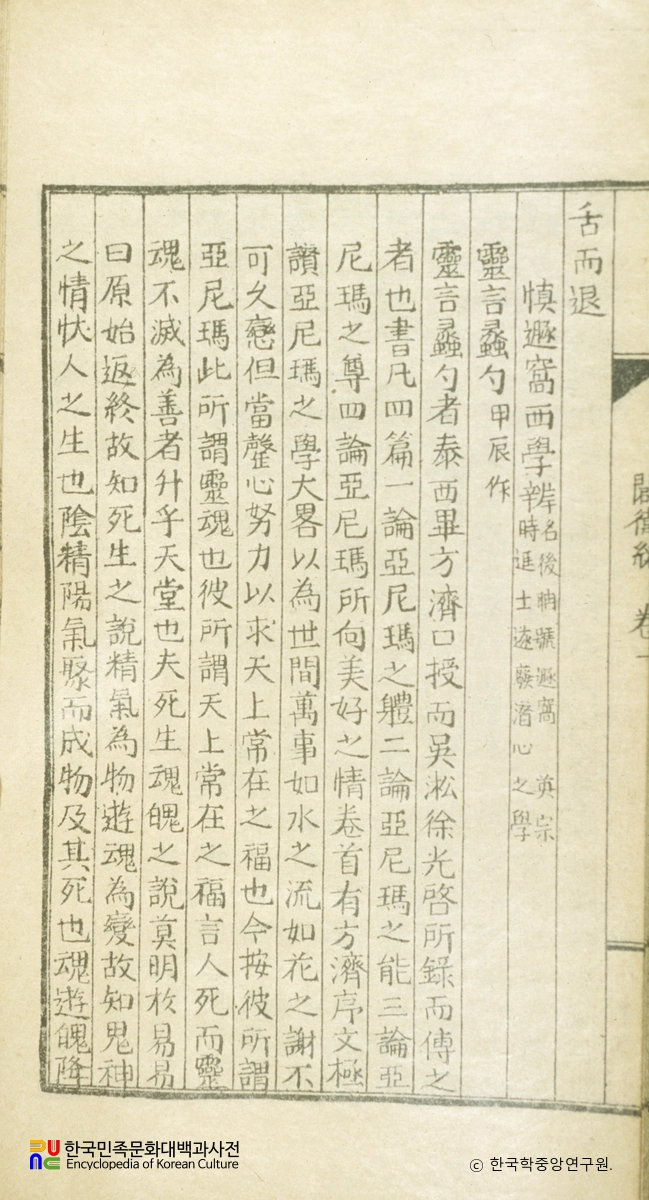 舌而退
愼遯窩西學辨 名後聃號遯窩 英宗
時進士遂廢潛心之學
靈言蠡勺 甲辰作
靈言蠡勺者泰西畢方濟口授而吳淞徐光啓所錄而傳之
者也書凡四篇一論亞尼瑪之軆二論亞尼瑪之能三論亞
尼瑪之尊四論亞尼瑪所向美好之情卷首有方濟序文極
讚亞尼瑪之學大畧以為世間萬事如水之流如花之謝不
可久戀但當罄心努力以求天上常在之福也今按彼所謂
亞尼瑪此所謂靈魂也彼所謂天上常在之福言人死而靈
魂不滅為善者升乎天堂也夫死生魂魄之說莫明於易易
曰原始返終故知死生之說精氣為物遊魂為變故知鬼神
之情狀人之生也陰精陽氣聚而成物及其死也魂遊魄降
闢衛
卷
한국민족문화대백과사전
Encyclopedia of Korean Culture
© 한국학중앙연구원.